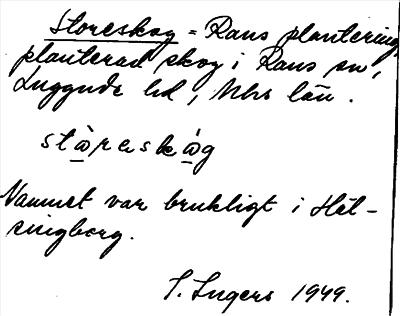 Storeskog = Raus plantering,
planterad skog i Raus sn,
Luggude hd, Mhs län.
stàreskág
Namnet var brukligt i Häl-
singborg.
I. Ingers 1949.